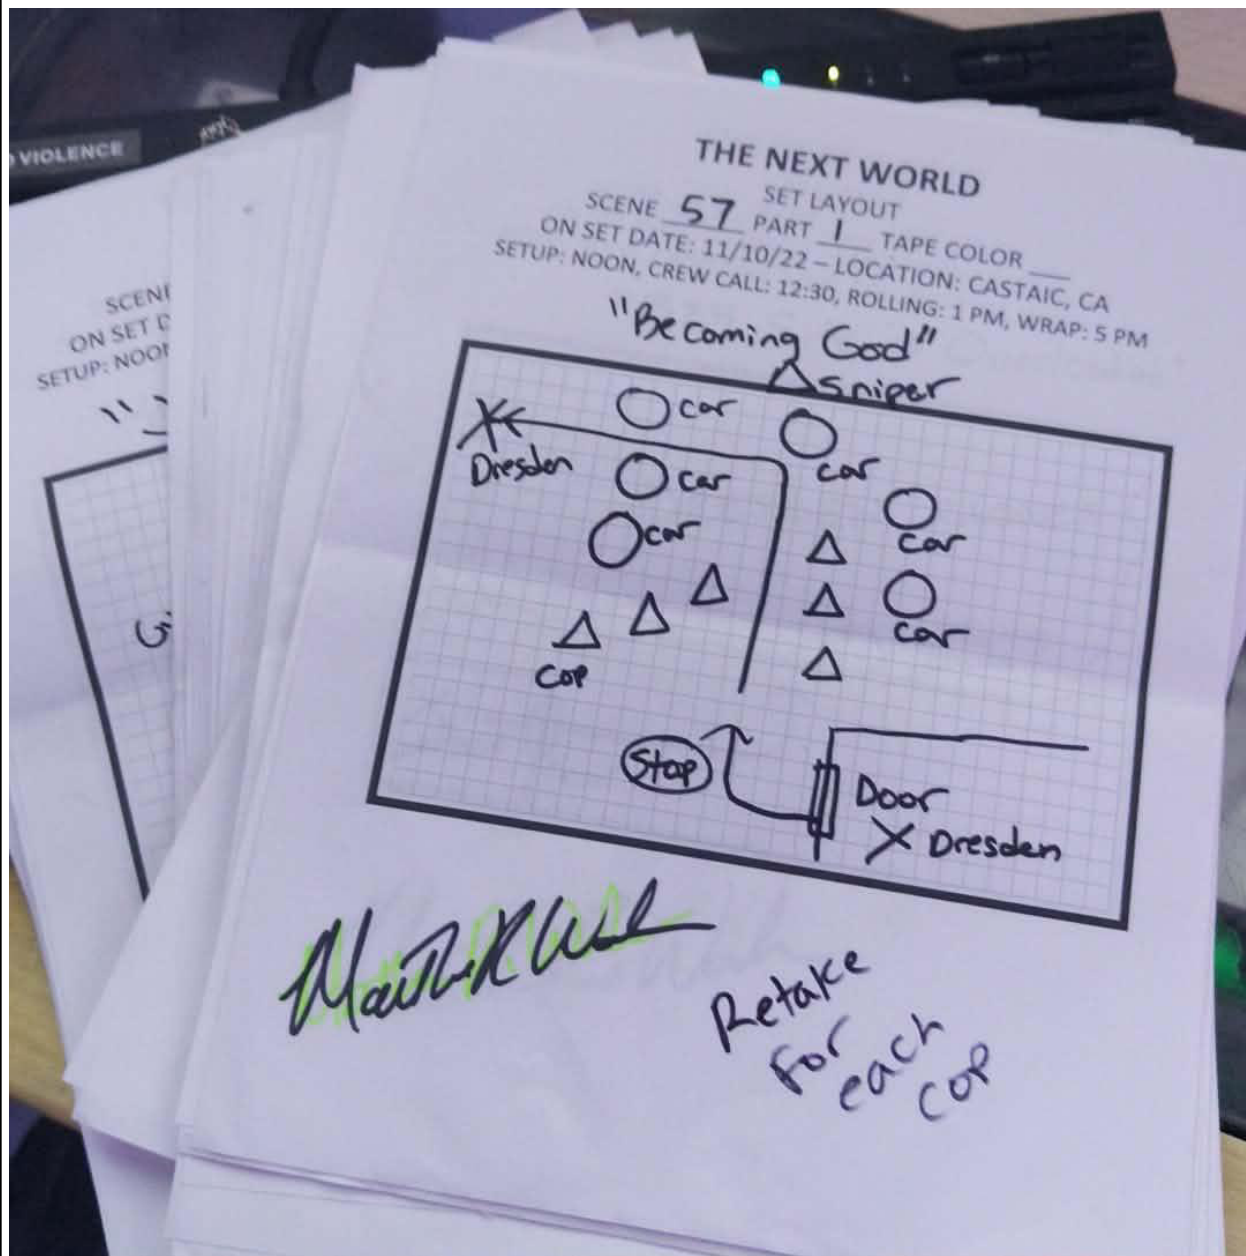 VIOLENCE
THE NEXT WORLD
SET LAYOUT
SCENE 57 PART 1 TAPE COLOR ___
ON SET DATE: 11/10/22 – LOCATION: CASTAIC, CA
SETUP: NOON, CREW CALL: 12:30, ROLLING: 1 PM, WRAP: 5 PM
"Becoming God"
sniper
car
car
Dresden
car
car
car
car
cop
Stop
Door
X Dresden
Retake
for
each
cop
SCENE
ON SET D
SETUP: NOON